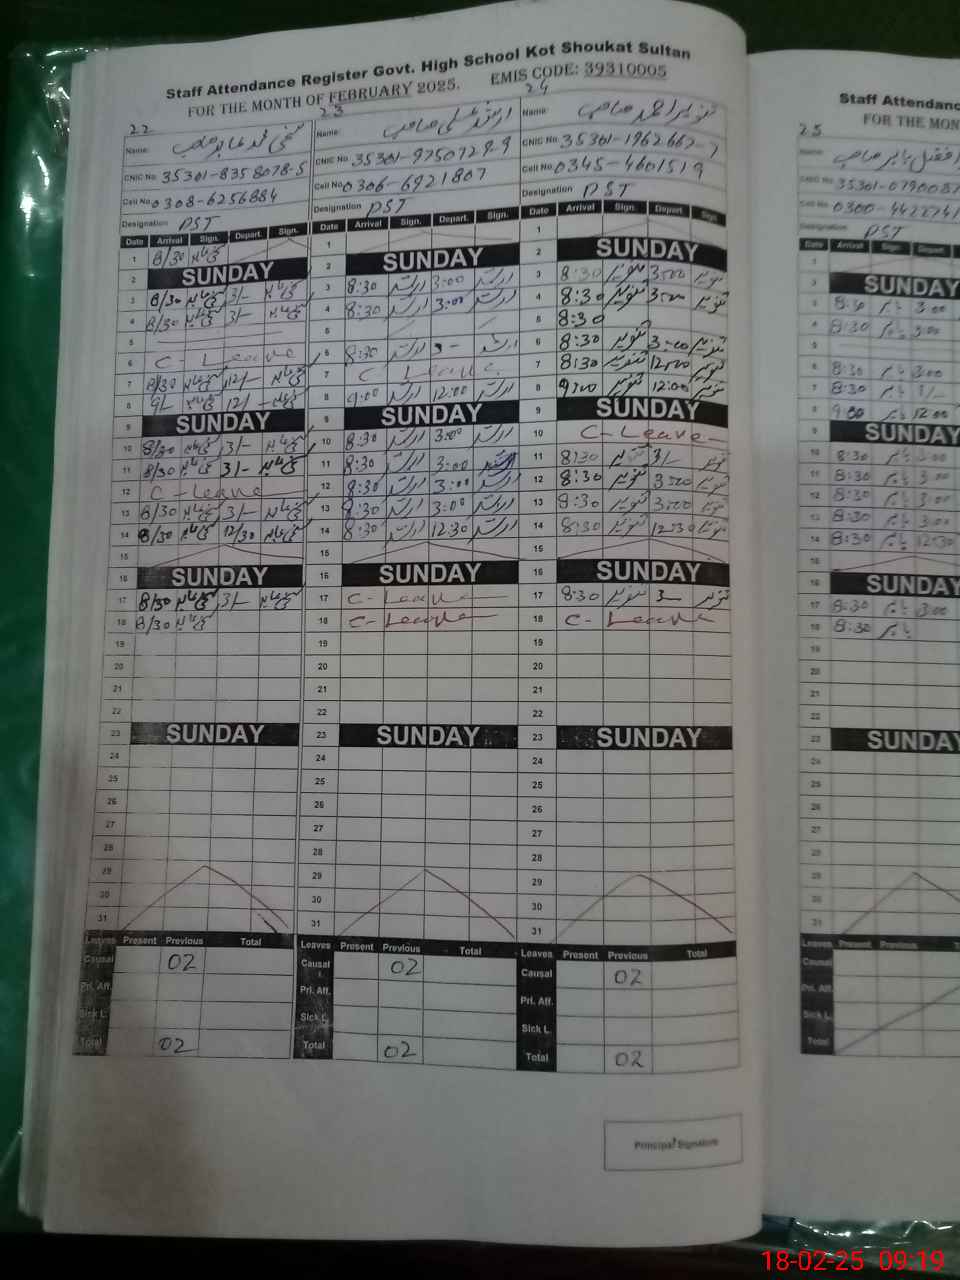 Staff Attendance Register Govt. High School Kot Shoukat Sultan
FOR THE MONTH OF FEBRUARY 2025. EMIS CODE: 39310005
22
Name:
CNIC No 35301-8358078-5
Cell No 0308-6256884
Designation PST
Date Arrival Sign. Depart. Sign.
1 8/30
2 SUNDAY
3 8/30 3/-
4 8/30 3/-
5
6 C-Leave
7 8/30 12/-
8 9/- 12/-
9 SUNDAY
10 8/30 3/-
11 8/30 3/-
12 C-Leave
13 8/30 3/-
14 8/30 12/30
15
16 SUNDAY
17 8/30 3/-
18 8/30
19
20
21
22
23 SUNDAY
24
25
26
27
28
29
30
31
Leaves Present Previous Total
Causal 02
Pri. Aff.
Sick L.
Total 02
23
Name: ارشد علی صاحب
CNIC No 35301-9750729-9
Cell No 0306-6921807
Designation PST
Date Arrival Sign. Depart. Sign.
1
2 SUNDAY
3 8:30 ارشد 3:00 ارشد
4 8:30 ارشد 3:00 ارشد
5
6 8:30 ارشد 3- ارشد
7 C-Leave
8 9:00 ارشد 12:00 ارشد
9 SUNDAY
10 8:30 ارشد 3:00 ارشد
11 8:30 ارشد 3:00 ارشد
12 8:30 ارشد 3:00 ارشد
13 8:30 ارشد 3:00 ارشد
14 8:30 ارشد 12:30 ارشد
15
16 SUNDAY
17 C-Leave
18 C-Leave
19
20
21
22
23 SUNDAY
24
25
26
27
28
29
30
31
Leaves Present Previous Total
Causal 02
Pri. Aff.
Sick L.
Total 02
24
Name: تنویر احمد صاحب
CNIC No 35301-1962662-7
Cell No 0345-4601519
Designation PST
Date Arrival Sign. Depart. Sign.
1
2 SUNDAY
3 8:30 تنویر 3:00 تنویر
4 8:30 تنویر 3:00 تنویر
5 8:30
6 8:30 تنویر 3:00 تنویر
7 8:30 تنویر 12:00 تنویر
8 9:00 تنویر 12:00 تنویر
9 SUNDAY
10 C-Leave
11 8:30 تنویر 3/- تنویر
12 8:30 تنویر 3:00 تنویر
13 8:30 تنویر 3:00 تنویر
14 8:30 تنویر 12:30 تنویر
15
16 SUNDAY
17 8:30 تنویر 3- تنویر
18 C-Leave
19
20
21
22
23 SUNDAY
24
25
26
27
28
29
30
31
Leaves Present Previous Total
Causal 02
Pri. Aff.
Sick L.
Total 02
Principal Signature
Staff Attendanc
FOR THE MON
25
Name:
CNIC No 35301-079008
Cell No 0300-442274
Designation PST
Date Arrival Sign. Depart.
1
2 SUNDAY
3 8:30 بابر 3:00
4 8:30 بابر 3:00
5
6 8:30 بابر 3:00
7 8:30 بابر
8 9:00 بابر 12:00
9 SUNDAY
10 8:30 بابر 3:00
11 8:30 بابر 3:00
12 8:30 بابر 3:00
13 8:30 بابر 3:00
14 8:30 بابر 12:30
15
16 SUNDAY
17 8:30 بابر 3:00
18 8:30 بابر
19
20
21
22
23 SUNDAY
24
25
26
27
28
29
30
31
Leaves Present Previous
Causal
Pri. Aff.
Sick L.
Total
18-02-25 09:19